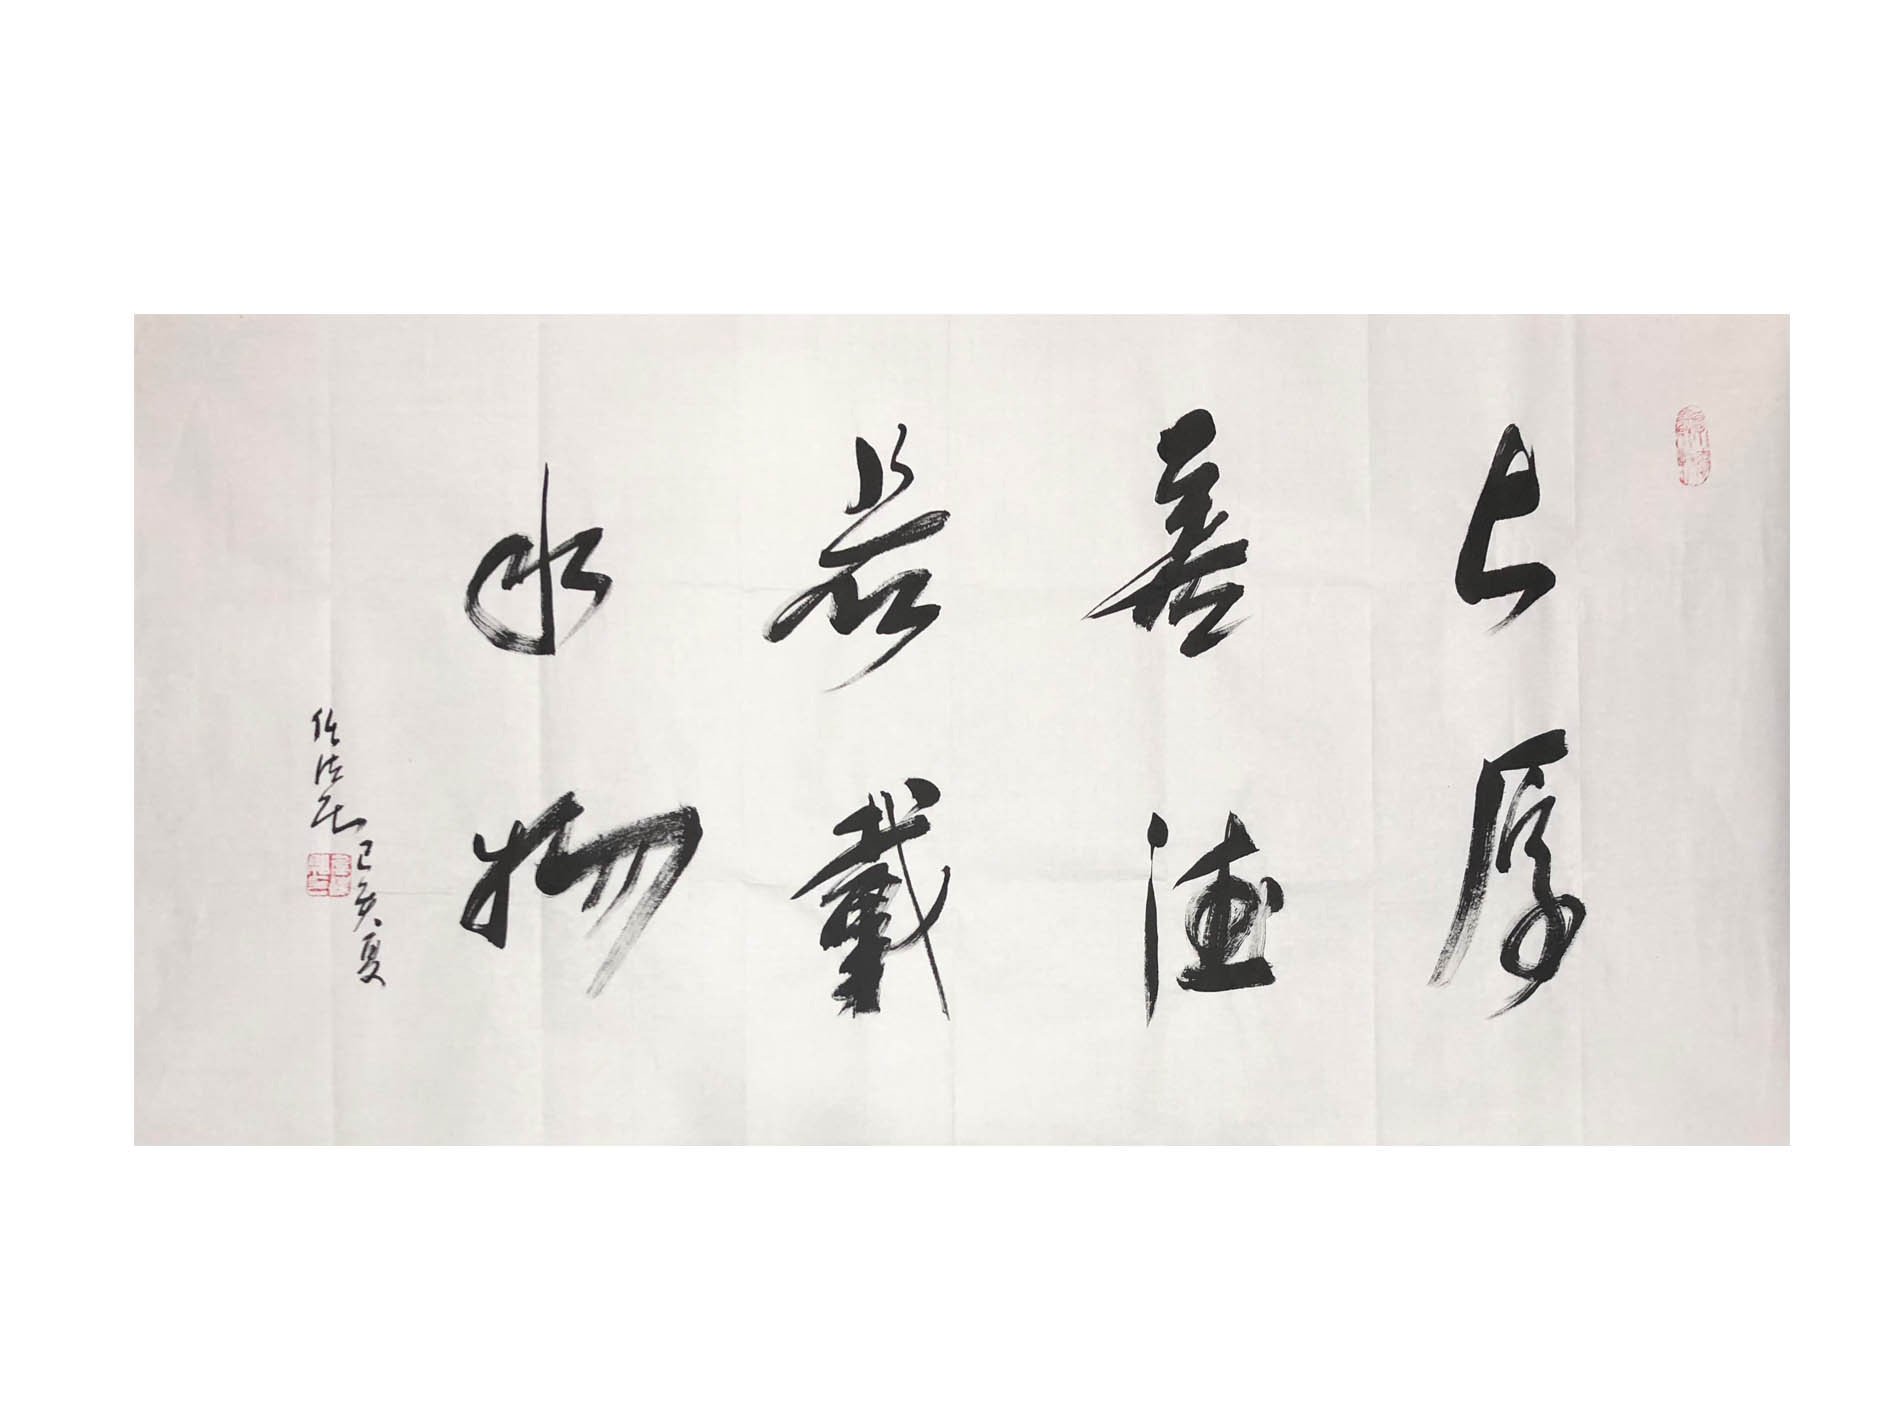 上善若水
厚德载物
己亥夏